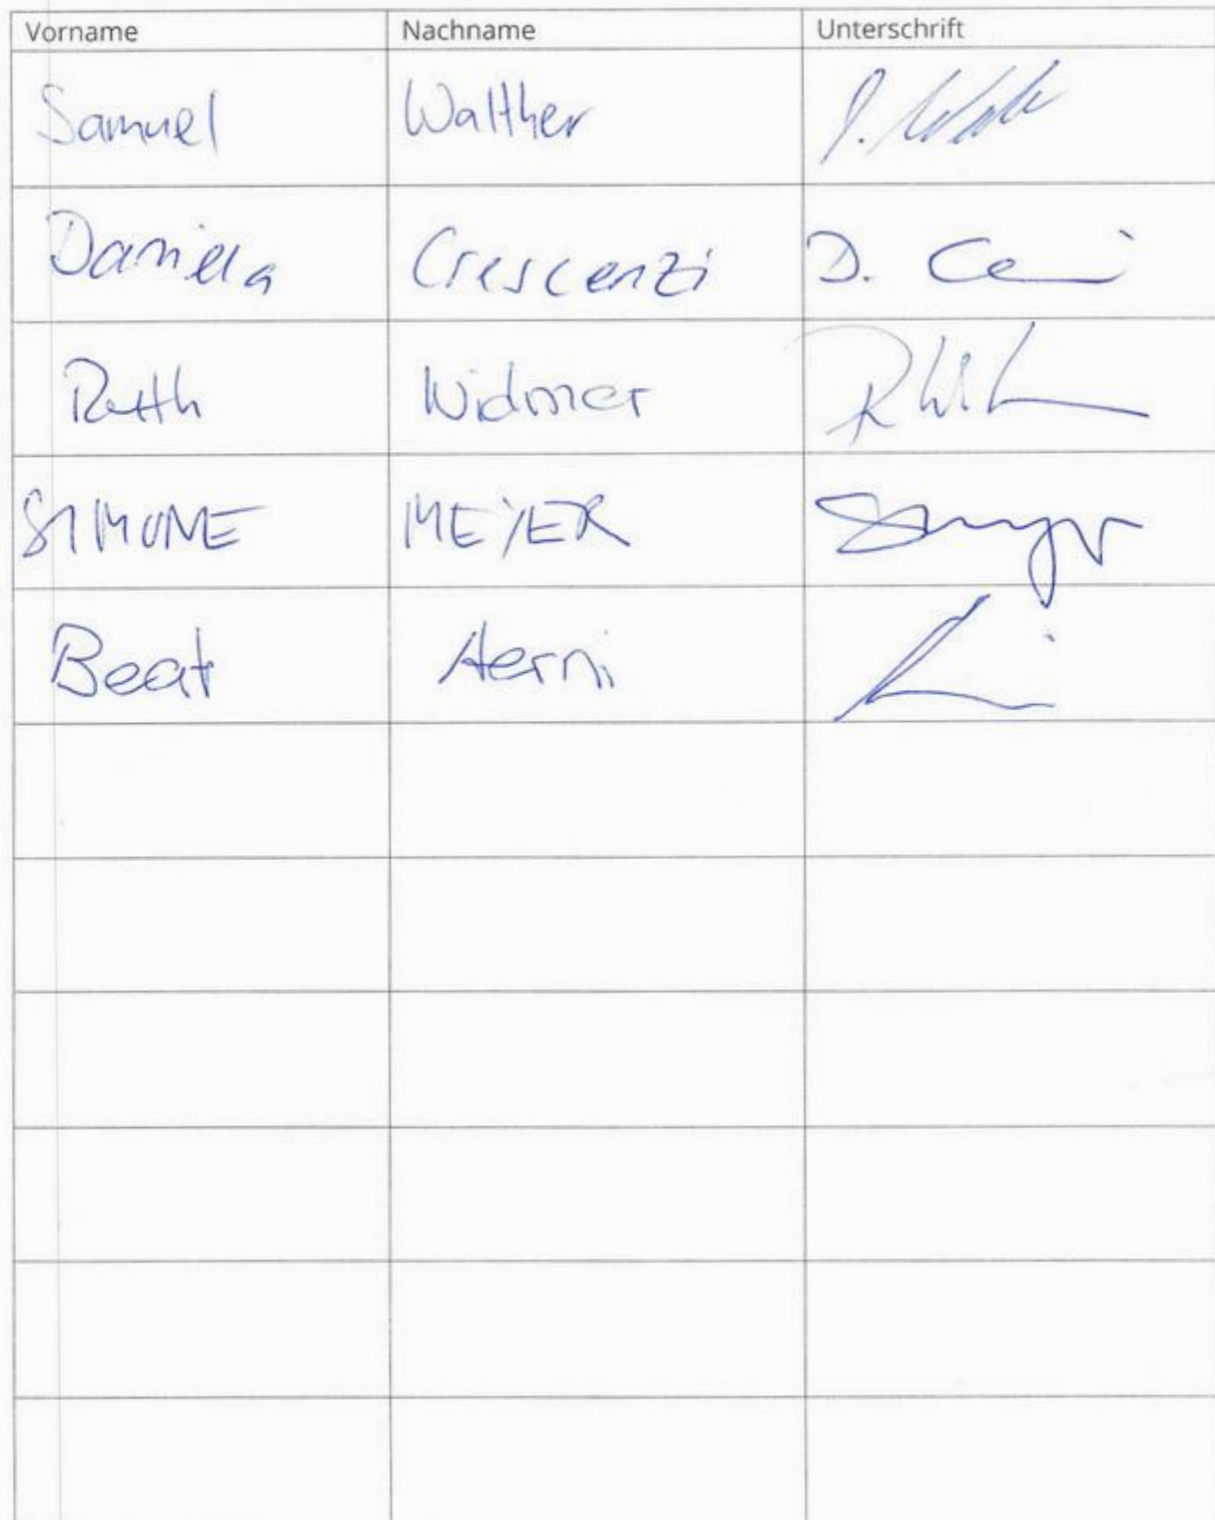 Vorname Nachname Unterschrift
Samuel Walther
Daniela Crescenzi D.
Ruth Widmer
SIMONE MEYER
Beat Aerni